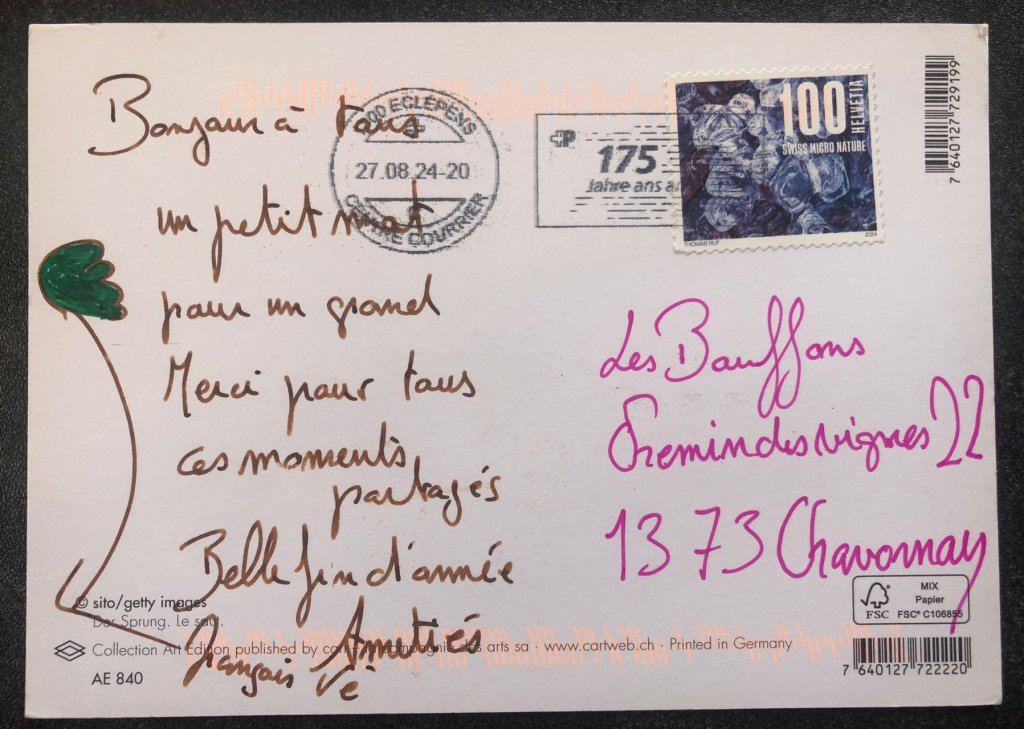 Bonjour à tous
un petit mot
pour un grand
Merci pour tous
ces moments
partagés
Belle fin d'année
Amitiés
François Vé
Les Bouffons
Chemin des vignes 22
1373 Chavornay
ECLEPENS
27.08.24-20
CENTRE COURRIER
P
175
Jahre ans a
100
HELVETIA
SWISS MICRO NATURE
THOMAS RUF
2024
7 640127 729199
© sito/getty images
Der Sprung. Le saut.
Collection Art Edition published by des arts sa · www.cartweb.ch · Printed in Germany
AE 840
FSC
MIX
Papier
FSC® C106855
7 640127 722220